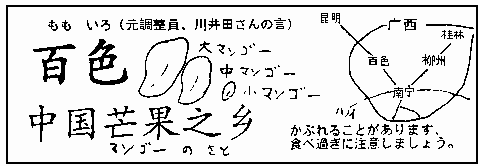 もも いろ（元調整員、川井田さんの言）
百色
大マンゴー
中マンゴー
小マンゴー
中国芒果之乡
マンゴー の さと
昆明
广西
桂林
百色
柳州
南宁
ハノイ
かぶれることがあります、
食べ過ぎに注意しましょう。